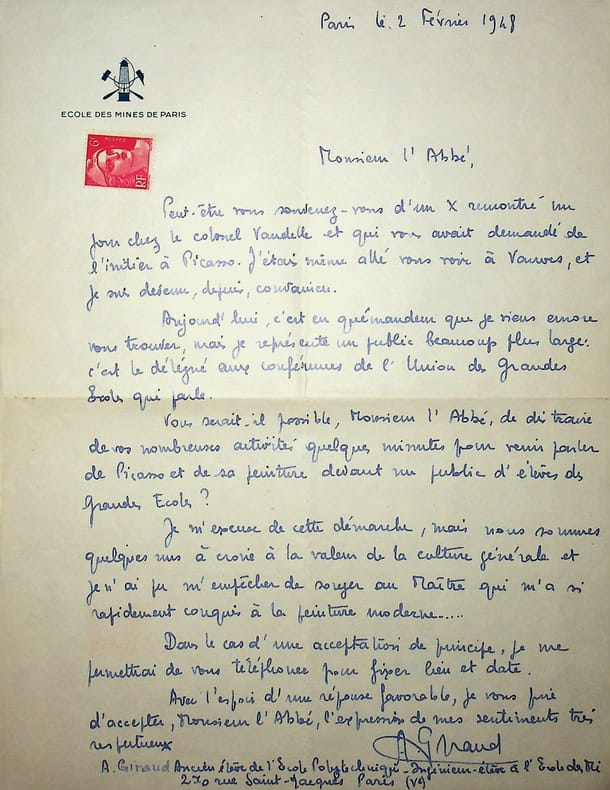 Paris le 2 Février 1948
ECOLE DES MINES DE PARIS
POSTES
6F
RF
Monsieur l'Abbé,
Peut-être vous souvenez-vous d'un X rencontré un
jour chez le colonel Vaudelle et qui vous avait demandé de
l'initier à Picasso. J'étais même allé vous voir à Vanves, et
je suis devenu, depuis, convaincu.
Aujourd'hui, c'est en quémandeur que je viens encore
vous trouver, mais je représente un public beaucoup plus large:
c'est le délégué aux conférences de l'Union des Grandes
Ecoles qui parle.
Vous serait-il possible, Monsieur l'Abbé, de distraire
de vos nombreuses activités quelques minutes pour venir parler
de Picasso et de sa peinture devant un public d'élèves des
Grandes Ecoles ?
Je m'excuse de cette démarche, mais nous sommes
quelques uns à croire à la valeur de la culture générale et
je n'ai pu m'empêcher de songer au Maître qui m'a si
rapidement conquis à la peinture moderne.....
Dans le cas d'une acceptation de principe, je me
permettrai de vous téléphoner pour fixer lieu et date.
Avec l'espoir d'une réponse favorable, je vous prie
d'accepter, Monsieur l'Abbé, l'expression de mes sentiments très
respectueux
A Giraud
A. Giraud Ancien élève de l'Ecole Polytechnique - Ingénieur-élève à l'Ecole des Mi
270 rue Saint-Jacques Paris (Ve)